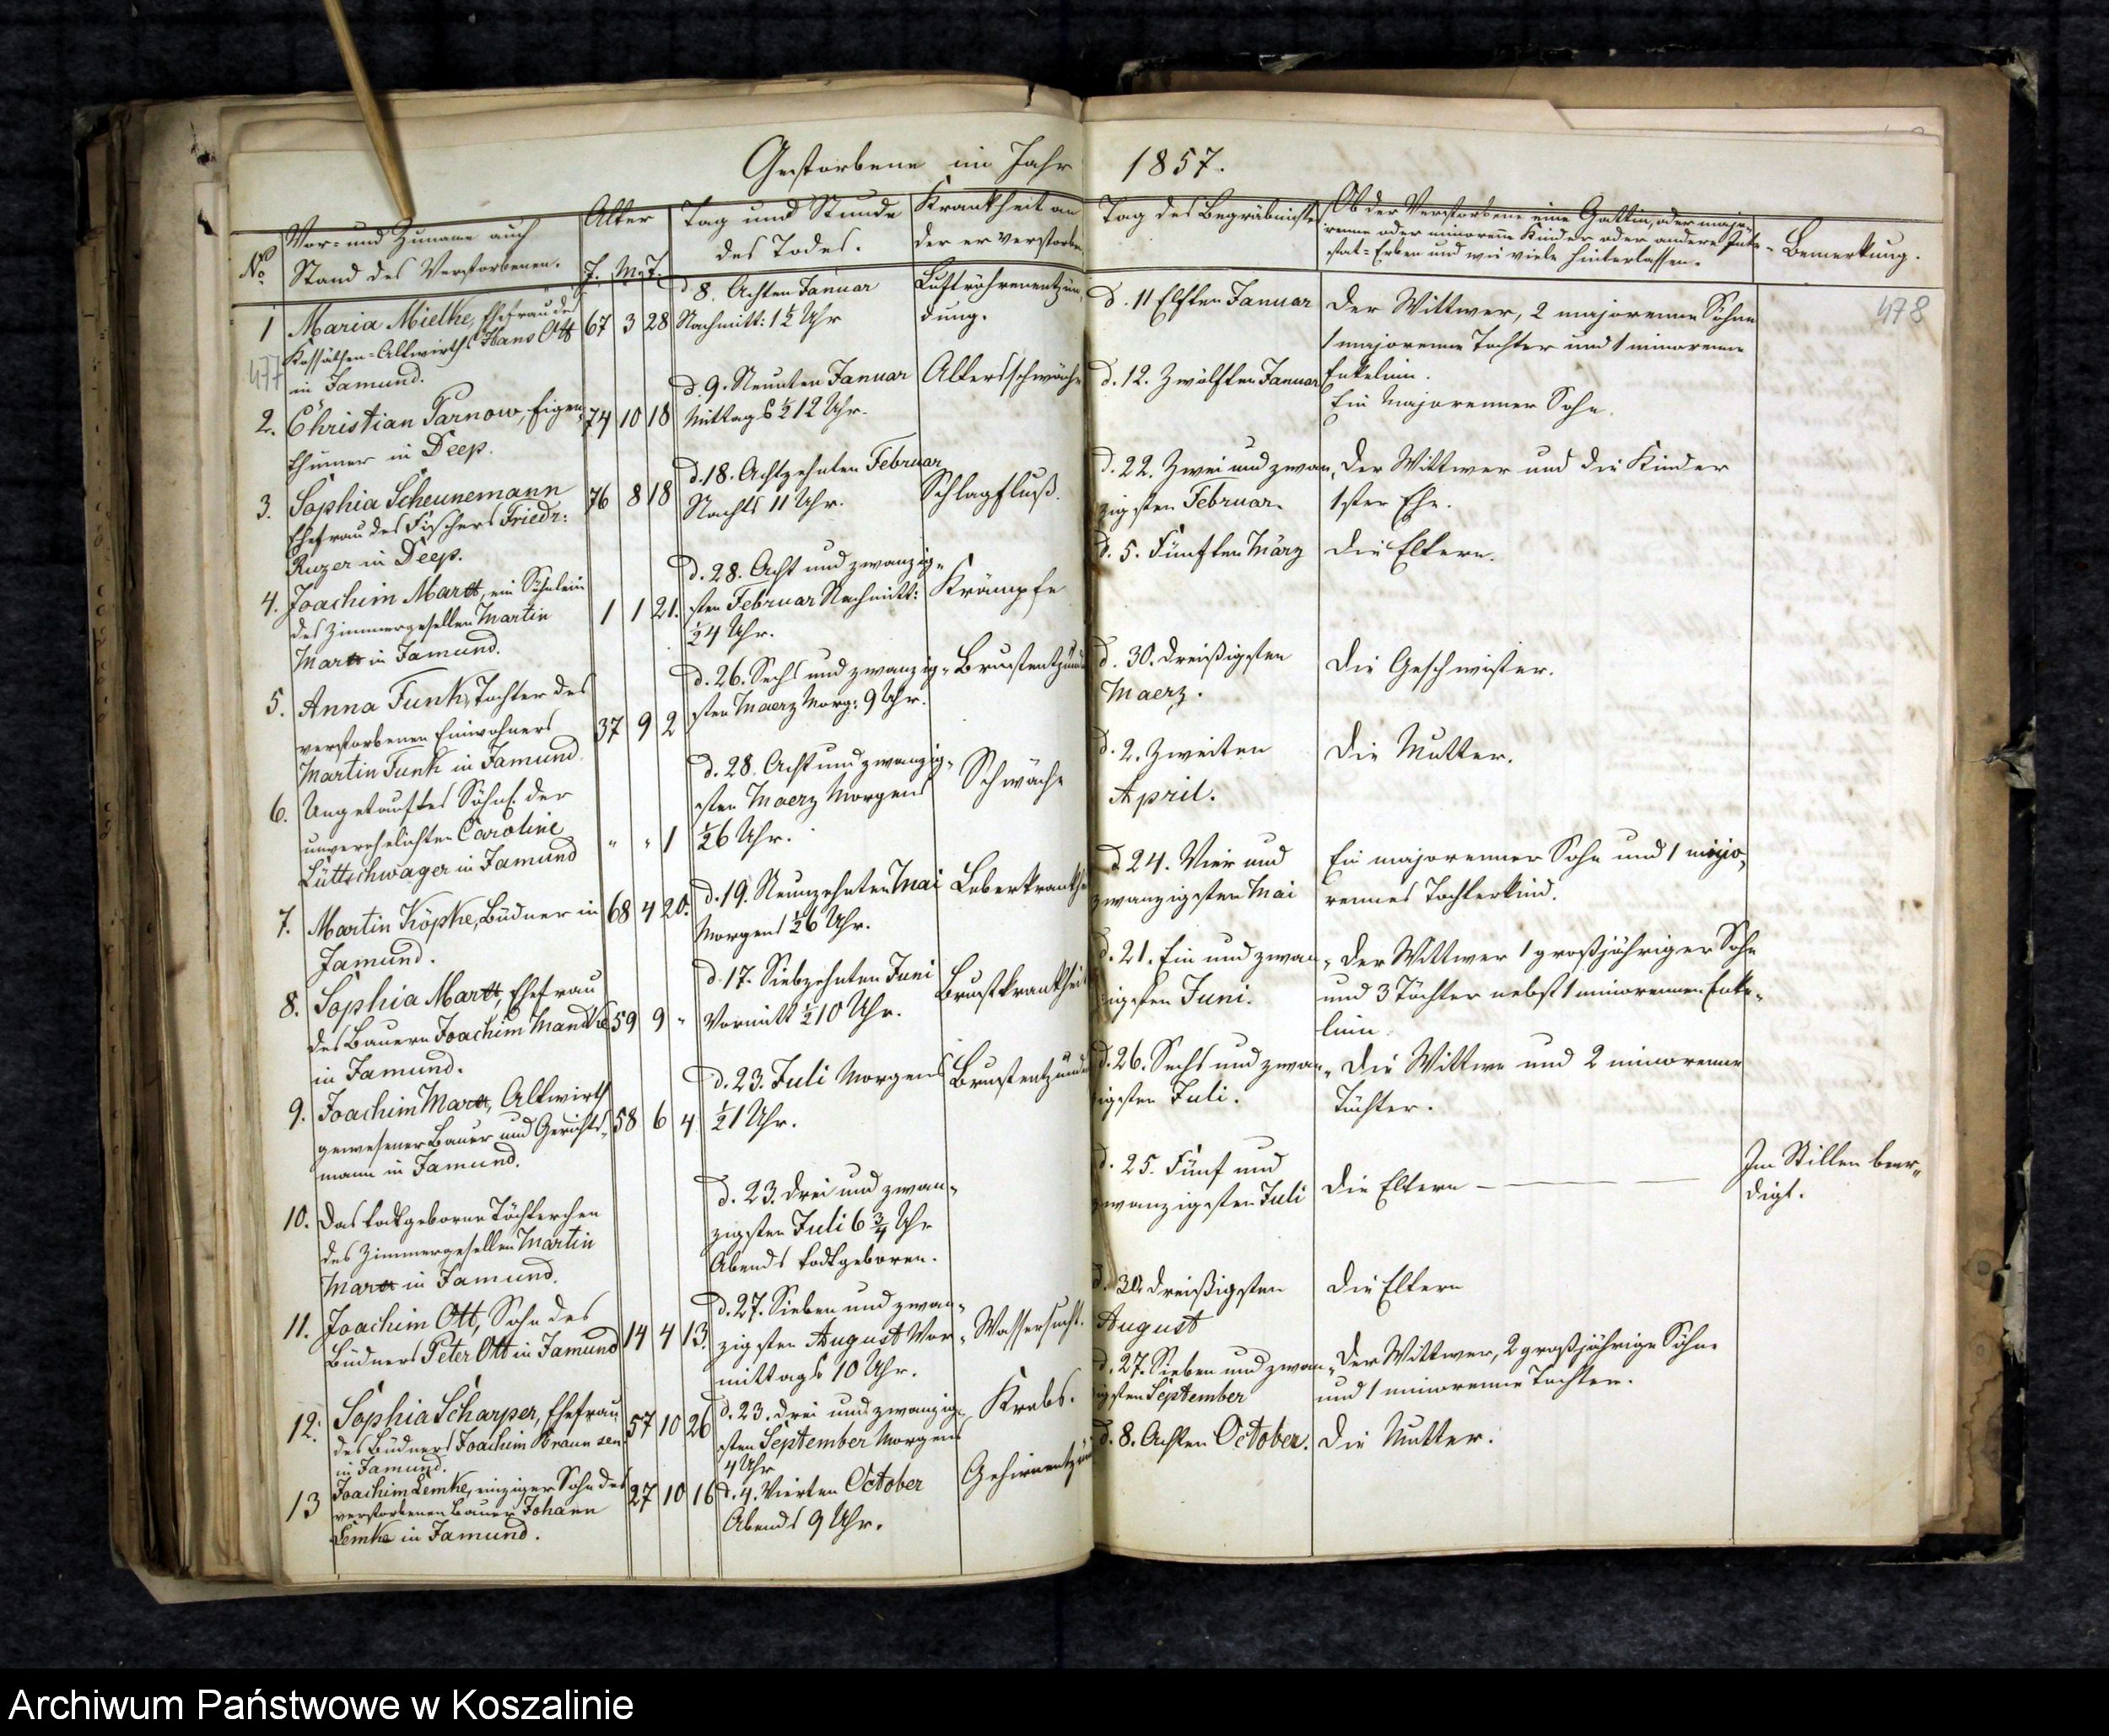 Gestorbene im Jahr 1857.
No
Vor- und Zuname auch
Stand des Verstorbenen.
Alter
J. M. T.
Tag und Stunde
des Todes.
Krankheit an
der er verstorben
Tag des Begräbnisses
Ob der Verstorbene eine Gattin, oder majo-
renne oder minorenne Kinder oder andere Inte-
stat-Erben und wie viele hinterlassen.
Bemerkung.
477
478
1 Maria Mielke, Ehefrau des
Kossäthen-Altwirths Hans Ott
in Jamund.
67 3 28
d 8. Achten Januar
Nachmitt: 1 1/2 Uhr
Luftröhrenentzün-
dung.
d. 11 Elften Januar
Der Wittwer, 2 majorenne Söhne
1 majorenne Tochter und 1 minorenne
Enkelinn.
2. Christian Parnow, Eigen-
thümer in Deep.
74 10 18
d. 9. Neunten Januar
Mittags 1/2 12 Uhr.
Altersschwäche
d. 12. Zwölften Januar
Ein majorenner Sohn.
3. Sophia Scheunemann
Ehefrau des Fischers Friedr:
Ruzer in Deep.
76 8 18
d. 18. Achtzehnten Februar
Nachts 11 Uhr.
Schlagfluß.
d. 22. Zwei und zwan-
zigsten Februar.
Der Wittwer und die Kinder
1ster Ehe.
4. Joachim Martt, ein Söhnlein
des Zimmergesellen Martin
Martt in Jamund.
1 1 21.
d. 28. Acht und zwanzig-
sten Februar Nachmitt:
1/2 4 Uhr.
Krämpfe
d. 5. Fünften März
Die Eltern.
5. Anna Funk, Tochter des
verstorbenen Einwohners
Martin Funk in Jamund.
37 9 2
d. 26. Sechs und zwanzig-
sten Maerz Morg: 9 Uhr.
Brustentzünd
d. 30. Dreißigsten
Maerz.
Die Geschwister.
6. Ungetauftes Söhnl. der
unverehelichten Caroline
Lüttschwager in Jamund
" " 1
d. 28. Acht und zwanzig-
sten Maerz Morgens
1/2 6 Uhr.
Schwäche
d. 2. Zweiten
April.
Die Mutter.
7. Martin Köpke, Büdner in
Jamund.
68 4 20.
d. 19. Neunzehnten Mai
Morgens 1/2 6 Uhr.
Leberkrankhe
d 24. Vier und
zwanzigsten Mai
Ein majorenner Sohn und 1
rennes Tochterkind.
8. Sophia Martt, Ehefrau
des Bauern Joachim Mandke
in Jamund.
59 9 "
d. 17. Siebzehnten Juni
Vormitt 1/2 10 Uhr.
Brustkrankheit
d. 21. Ein und zwan-
zigsten Juni.
Der Wittwer 1 großjähriger Sohn
und 3 Töchter nebst 1 minorennen Enke-
linn.
9. Joachim Martt, Altwirth
gewesener Bauer und Gerichts-
mann in Jamund.
58 6 4
d. 23. Juli Morgens
1/2 1 Uhr.
Brustentzünd
d. 26. Sechs und zwan-
zigsten Juli.
Die Wittwe und 2 minorenne
Töchter.
10. Das todtgeborne Töchterchen
des Zimmergesellen Martin
Martt in Jamund.
d. 23. Drei und zwan-
zigsten Juli 6 3/4 Uhr
Abends todtgeboren.
d. 25. Fünf und
zwanzigsten Juli
Die Eltern
Im Stillen beer-
digt.
11. Joachim Ott, Sohn des
Büdners Peter Ott in Jamund
14 4 13.
d. 27. Sieben und zwan-
zigsten August Vor-
mittags 10 Uhr.
Wassersucht.
d. 30. Dreißigsten
August
Die Eltern
12. Sophia Scharper, Ehefrau
des Büdners Joachim Braun sen
in Jamund.
57 10 26
d. 23. Drei und zwanzig-
sten September Morgens
4 Uhr
Krebs.
d. 27. Sieben und zwan-
zigsten September
Der Wittwer, 2 großjährige Söhne
und 1 minorenne Tochter.
13 Joachim Lemke, einziger Sohn des
verstorbenen Bauer Johann
Lemke in Jamund.
27 10 16
d. 4. Vierten October
Abends 9 Uhr.
Gehirnentzün
d. 8. Achten October.
Die Mutter.
Archiwum Państwowe w Koszalinie